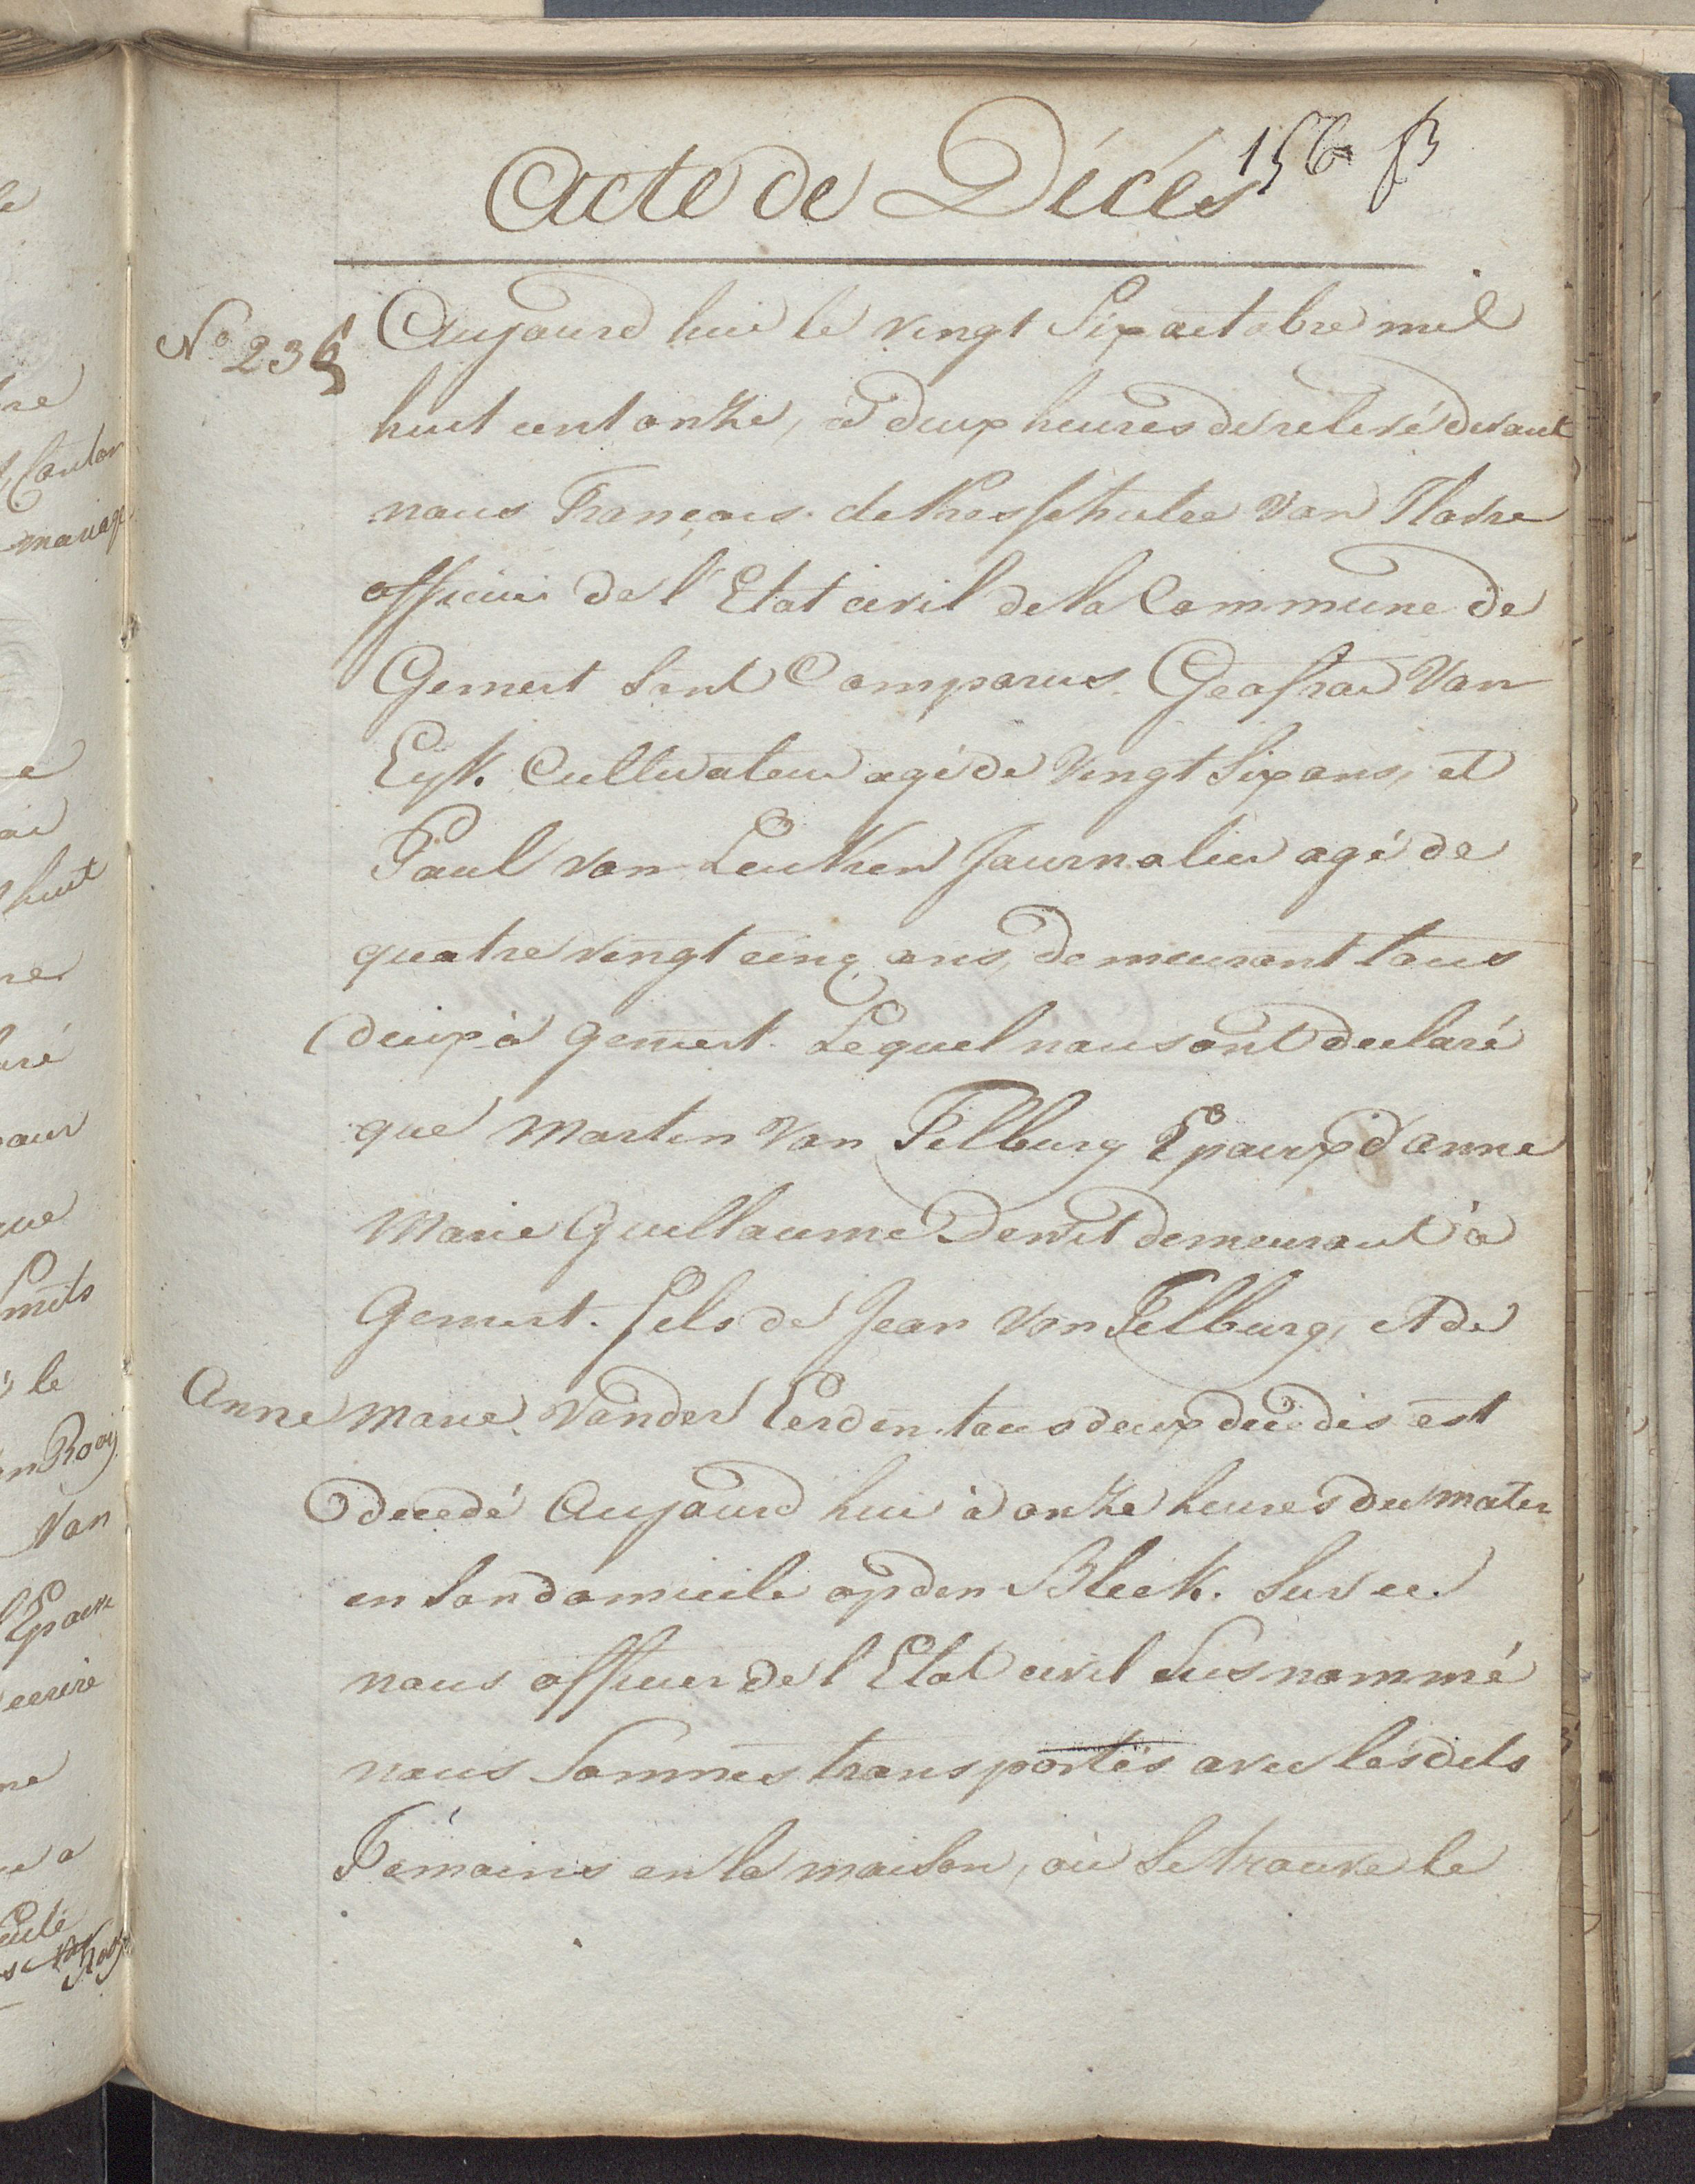 Acte de Décés
156
No 236
Aujourd hui le vingt Six octobre mil
huit cent onze, à deux heures de relevé devant
nous François de
officier de l'Etat civil de la Commune de
Gemert Sont Comparus Van
Eyk Cultivateur agé de vingt Six ans, et
Paul van Leuken Journalier agé de
quatre vingt cinq ans, demeurant tous
deux à gemert. Lequel nous ont declaré
que Martin Van Tilburg Epoux d'anne
Marie Guillaume Dewit demeurant à
Gemert. fils de Jean Van Tilburg, et de
Anne Marie Vander Eerden tous deux decedés est
decedé Aujourd hui à onze heures du matin
en Son domicile op den Bleek. Sur ce
nous officier de l Etat civil Susnommé
nous Sommes transportés avec lesdits
Temoins en la maison, où Se trouve le
Canton
mariage
huit
le
Rooij
Van